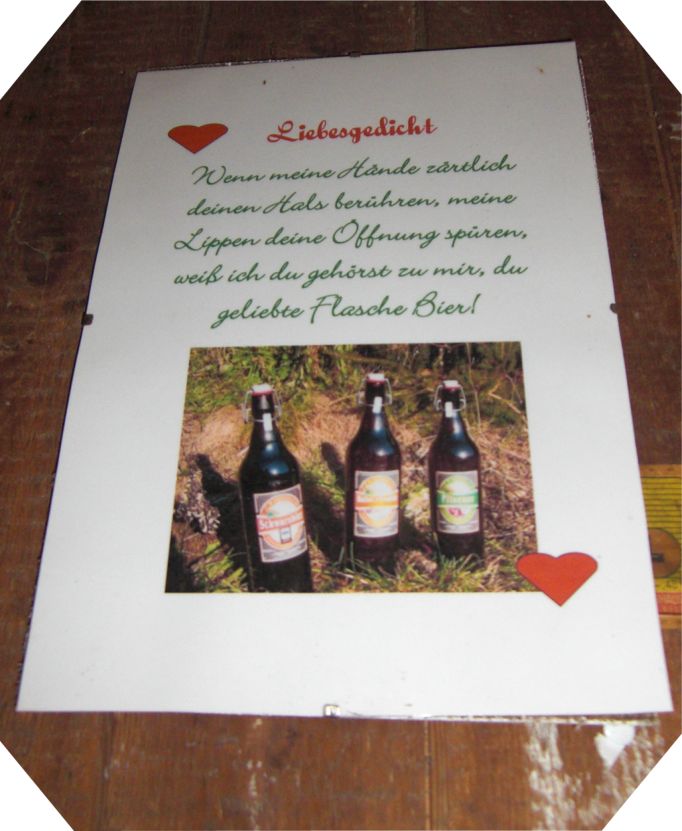 Liebesgedicht
Wenn meine Hände zärtlich
deinen Hals berühren, meine
Lippen deine Öffnung spüren,
weiß ich du gehörst zu mir, du
geliebte Flasche Bier!